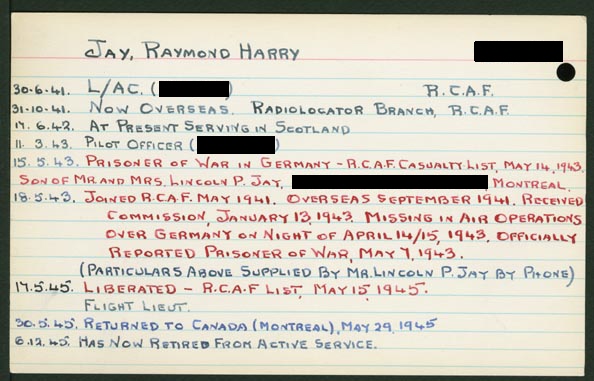 JAY, RAYMOND HARRY
30·6·41. L/AC. ( ) R.C.A.F.
31·10·41. NOW OVERSEAS. RADIOLOCATOR BRANCH, R.C.A.F.
17. 6.42. AT PRESENT SERVING IN SCOTLAND
11. 3.43. PILOT OFFICER ( )
15. 5.43. PRISONER OF WAR IN GERMANY - R.C.A.F. CASUALTY LIST, MAY 14, 1943.
SON OF MR. AND MRS. LINCOLN P. JAY, MONTREAL.
18.5.43. JOINED R.C.A.F. MAY 1941. OVERSEAS SEPTEMBER 1941. RECEIVED
COMMISSION, JANUARY 13, 1943. MISSING IN AIR OPERATIONS
OVER GERMANY ON NIGHT OF APRIL 14/15, 1943. OFFICIALLY
REPORTED PRISONER OF WAR, MAY 7, 1943.
(PARTICULARS ABOVE SUPPLIED BY MR. LINCOLN P. JAY BY PHONE)
17.5.45. LIBERATED - R.C.A.F LIST, MAY 15, 1945.
FLIGHT LIEUT.
30.5.45. RETURNED TO CANADA (MONTREAL), MAY 29, 1945
6.12.45. HAS NOW RETIRED FROM ACTIVE SERVICE.